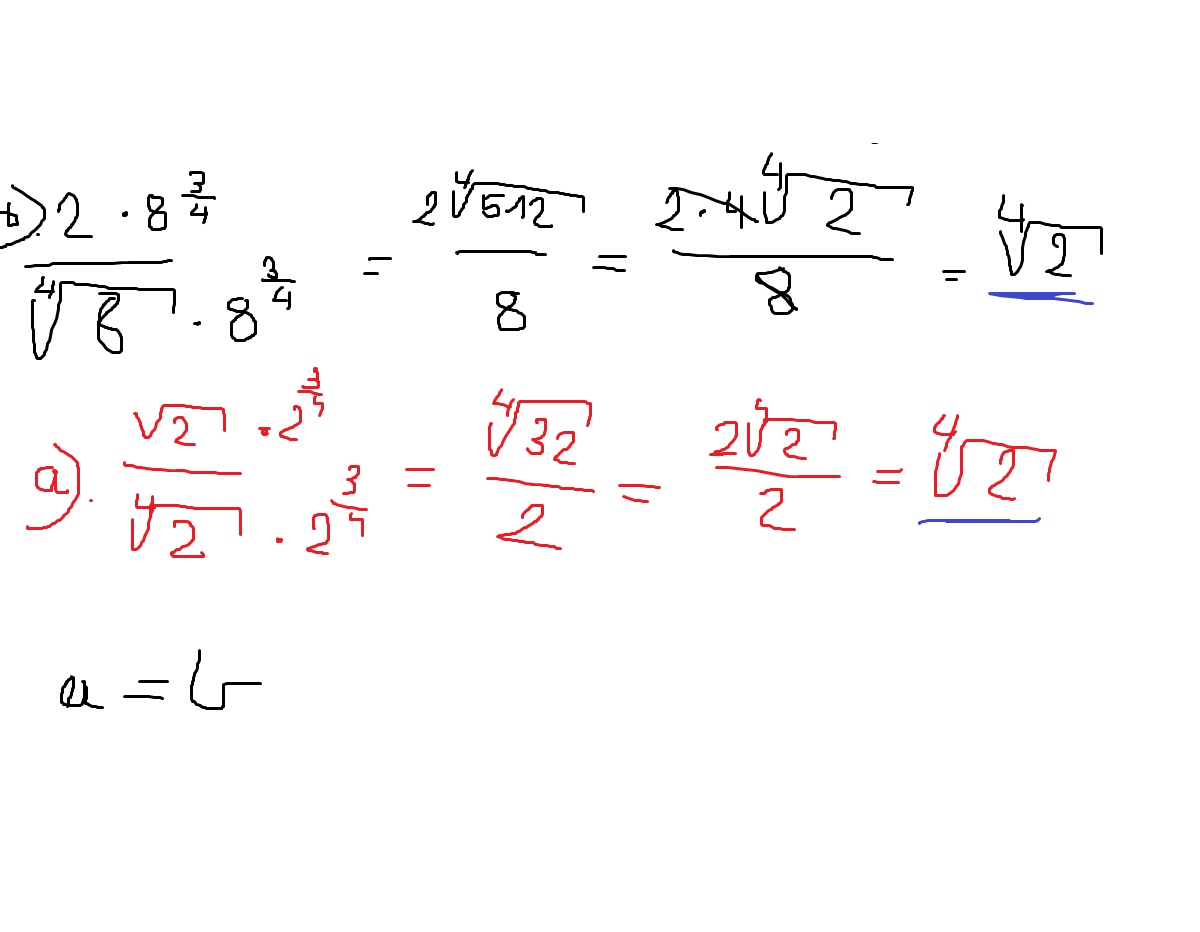 b) \frac{2 \cdot 8^{\frac{3}{4}}}{\sqrt[4]{8} \cdot 8^{\frac{3}{4}}} = \frac{2\sqrt[4]{512}}{8} = \frac{2 \cdot 4\sqrt[4]{2}}{8} = \sqrt[4]{2}
a). \frac{\sqrt{2} \cdot 2^{\frac{3}{4}}}{\sqrt[4]{2} \cdot 2^{\frac{3}{4}}} = \frac{\sqrt[4]{32}}{2} = \frac{2\sqrt[4]{2}}{2} = \sqrt[4]{2}
a = b